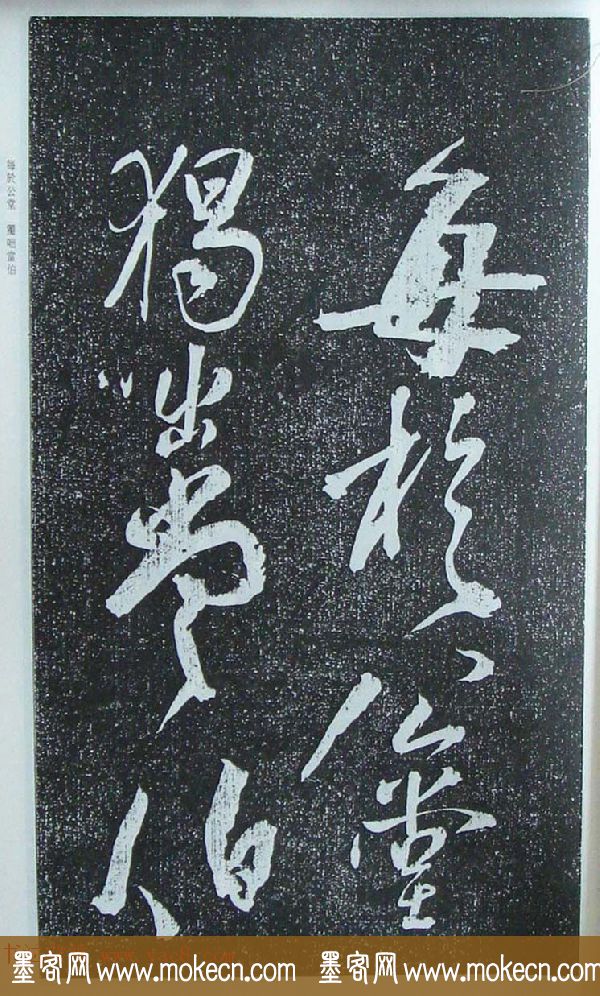 每於公堂
獨咄當伯
每於公堂 獨咄當伯
墨客网 www.mokecn.com 墨客网 www.mokecn.com